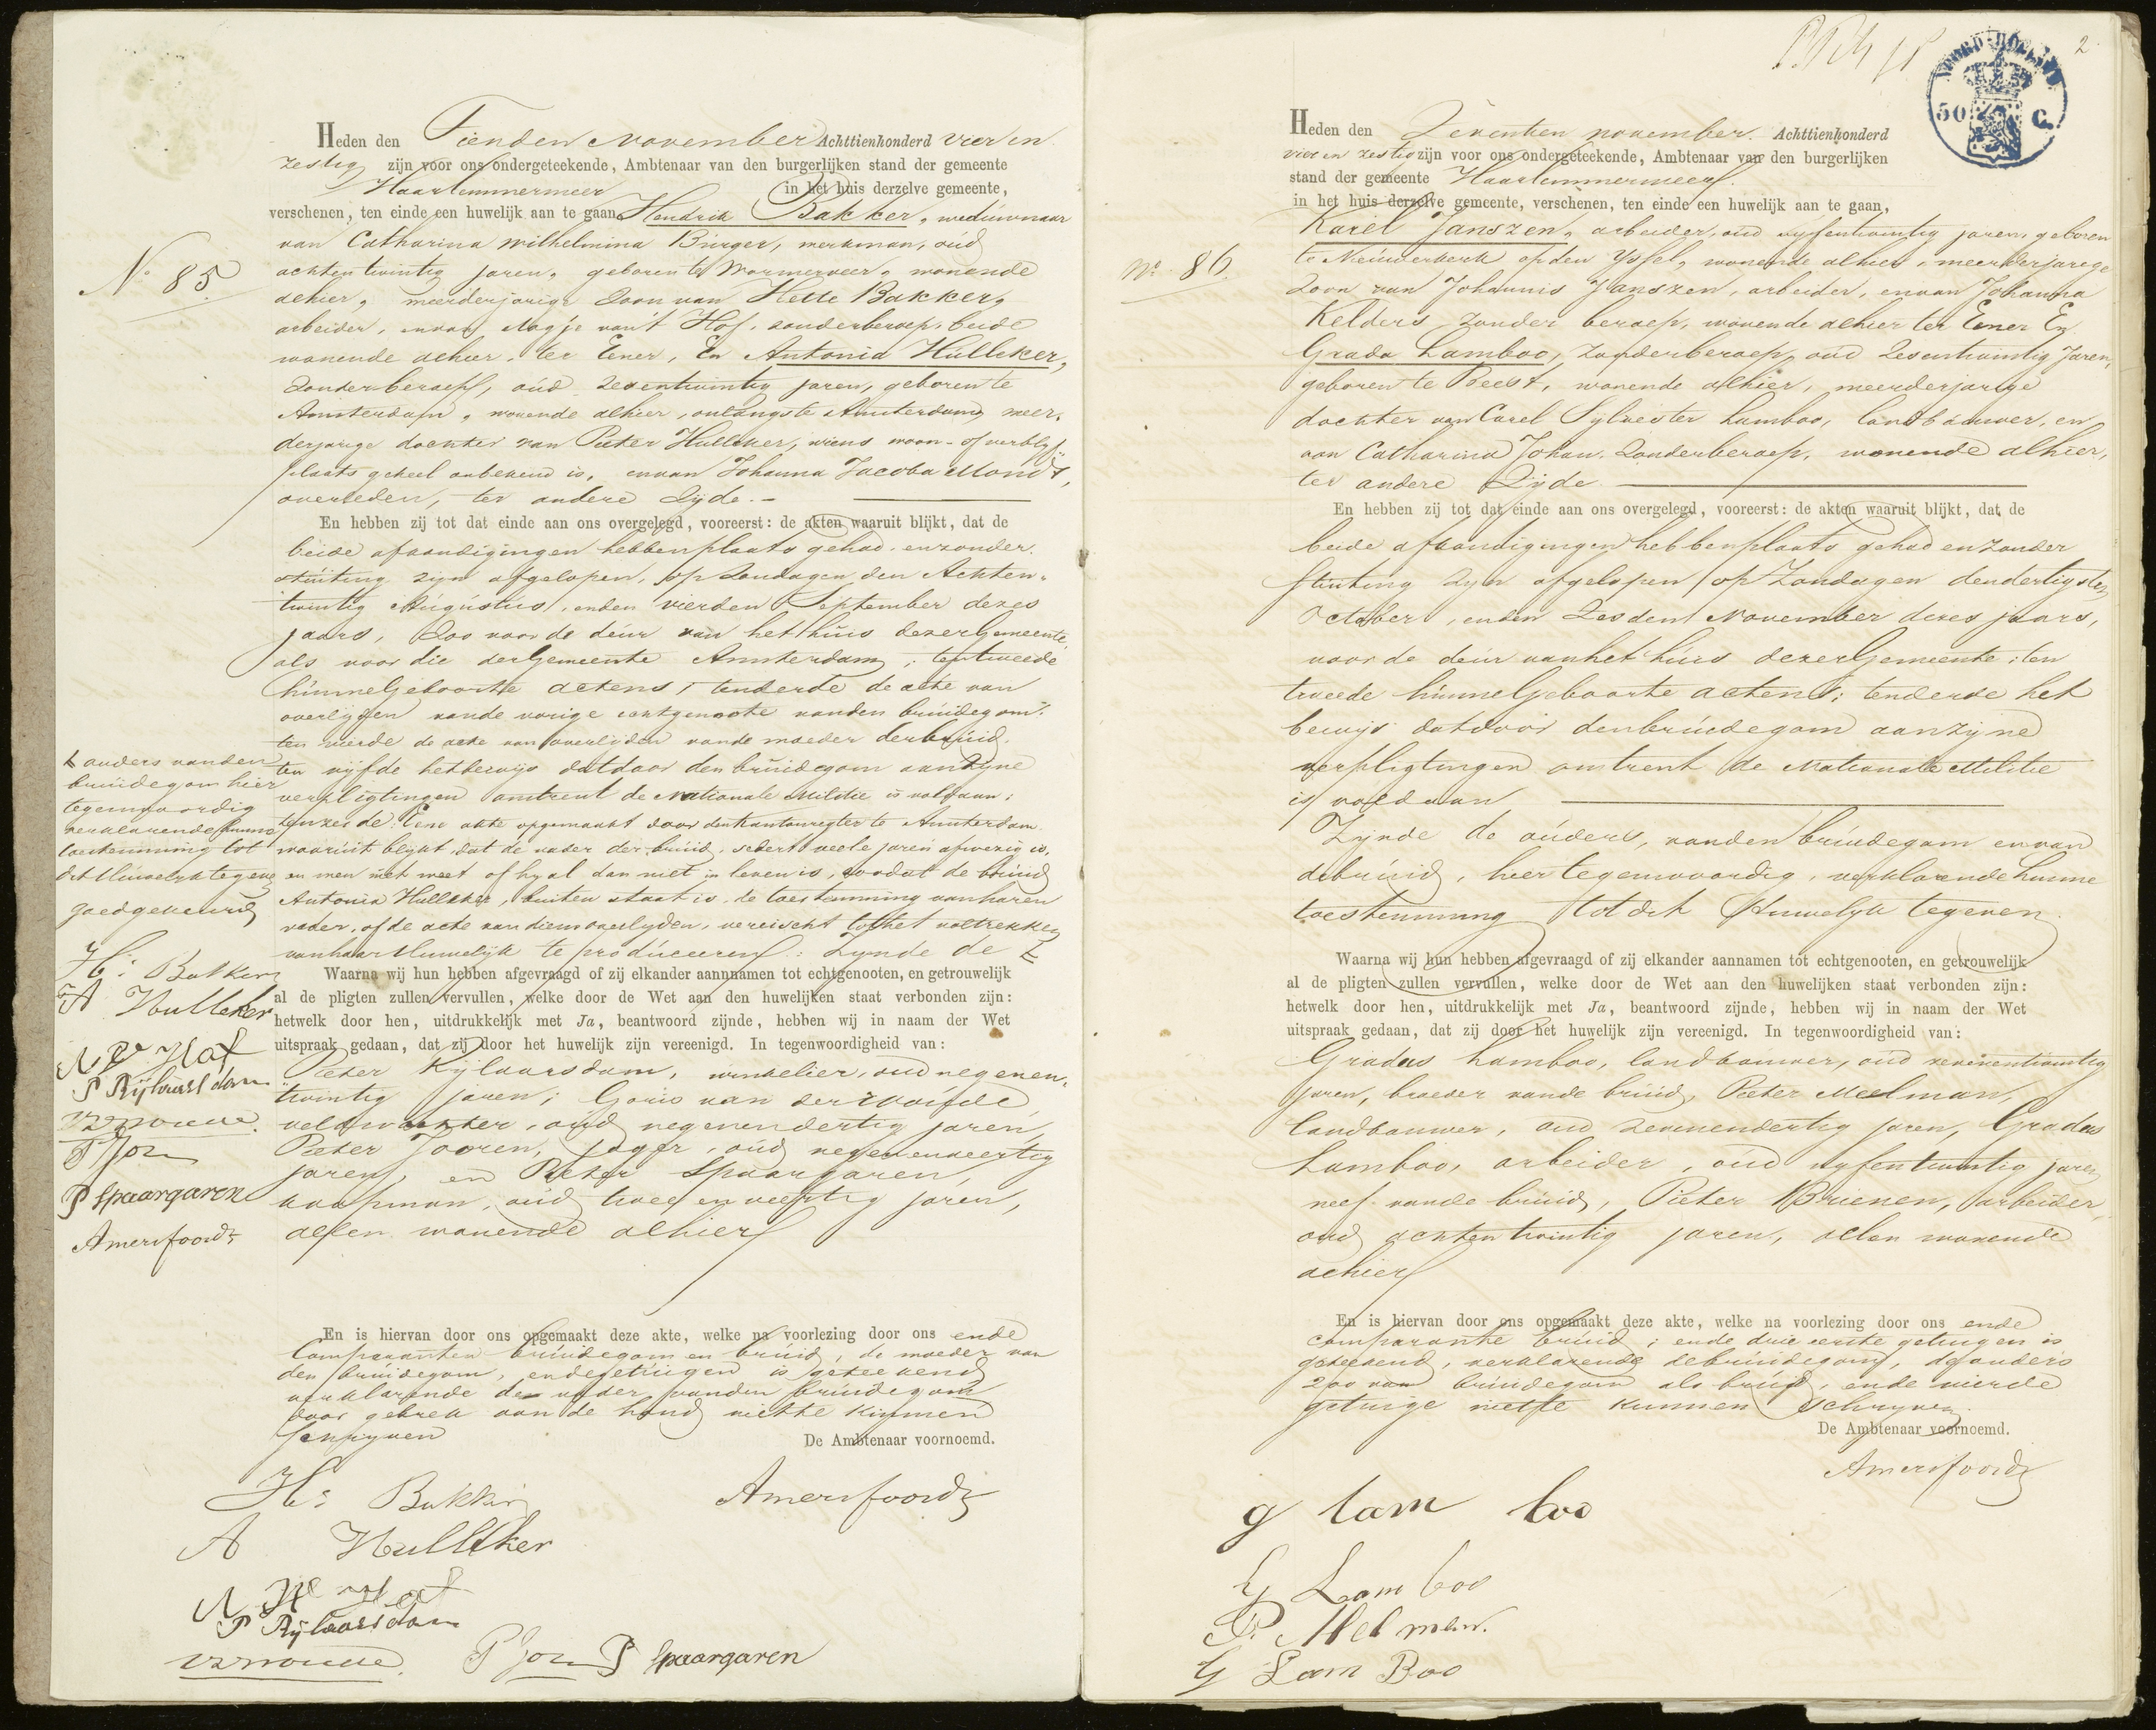 Heden den Tienden November Achttienhonderd vier en
zestig zijn voor ons ondergeteekende, Ambtenaar van den burgerlijken stand der gemeente
Haarlemmermeer in het huis derzelve gemeente,
verschenen, ten einde een huwelijk aan te gaan Hendrik Bakker, weduwnaar
van Catharina Wilhelmina Bürger, werkman, oud
achtentwintig jaren, geboren te Wormerveer, wonende
alhier, meerderjarige Zoon van Hette Bakker,
arbeider, en van Nagje van't Hof, zonder beroep, beide
wonende alhier, ter Eener, En Antonia Hulleker,
Zonder beroep, oud zesentwintig jaren, geboren te
Amsterdam, wonende alhier, onlangs te Amsterdam, meer-
derjarige dochter van Pieter Hulleker, wiens woon- of verblyf
plaats geheel onbekend is, en van Johanna Jacoba Mondt,
overleden, ter andere Zijde. -
N.o 85
En hebben zij tot dat einde aan ons overgelegd, vooreerst: de akten waaruit blijkt, dat de
beide afkondigingen hebben plaats gehad en zonder
stuiting zijn afgelopen, op Zondagen den Achten-
twintig Augustus, en den vierden September dezes
jaars, Zoo voor de deur van het huis dezer Gemeente
als voor die der Gemeente Amsterdam; ten tweede
hunne Geboorte actens; ten derde de acte van
overlyden van de vorige echtgenoote van den bruidegom;
ten vierde de acte van overlyden van de moeder der bruid,
ten vyfde het bewys dat door den bruidegom aan zyne
verpligtingen omtrent de Nationale Militie is voldaan;
ten zesde: Eene akte opgemaakt door den Kantonregter te Amsterdam
waaruit blykt, dat de vader der bruid, sedert veele jaren afwezig is,
en men niet weet of hy al dan niet in leven is, zoodat de bruid
Antonia Hulleker, buiten staat is, de toestemming van haren
vader, of de acte van diens overlyden, vereischt tot het voltrekken
van haar Huwelyk te produceren. Zynde de
ouders van den
bruidegom hier
tegenwoordig
verklarende hunne
toestemming tot
dit Huwelyk te geven
goedgekeurd
H: Bakker
A Hulleker
P Rijlaarsdam
P Spaargaren
Amersfoordt
Waarna wij hun hebben afgevraagd of zij elkander aannnamen tot echtgenooten, en getrouwelijk
al de pligten zullen vervullen, welke door de Wet aan den huwelijken staat verbonden zijn:
hetwelk door hen, uitdrukkelijk met Ja, beantwoord zijnde, hebben wij in naam der Wet
uitspraak gedaan, dat zij door het huwelijk zijn vereenigd. In tegenwoordigheid van:
Pieter Rijlaarsdam, winkelier, oud negenen-
twintig jaren; Goris van der Woude
veldwachter, oud negenendertig jaren,
Pieter Jooren, jager, oud negenenveertig
jaren, en Pieter Spaargaren,
koopman, oud twee en veertig jaren,
allen wonende alhier
En is hiervan door ons opgemaakt deze akte, welke na voorlezing door ons ende
Comparanten bruidegom en bruid, de moeder van
den bruidegom, en de getuigen is geteekend
verklarende de vader van den bruidegom
door gebrek aan de hand niet te kunnen
schryven
De Ambtenaar voornoemd.
H: Bakker
Amersfoordt
A Hulleker
P Rijlaarsdam
P Spaargaren
2
NOORD-HOLLAND
50 C.
Heden den Zeventien november. Achttienhonderd
vier en zestig zijn voor ons ondergeteekende, Ambtenaar van den burgerlijken
stand der gemeente Haarlemmermeer.
in het huis derzelve gemeente, verschenen, ten einde een huwelijk aan te gaan,
Karel Janszen, arbeider, oud vyfentwintig jaren, geboren
te Nieuwerkerk op den Yssel, wonende alhier, meerderjarige
Zoon van Johannis Janszen, arbeider, en van Johanna
Kelders, zonder beroep, wonende alhier ter Eener En
Grada Lamboo, Zonder beroep, oud Zesentwintig Jaren,
geboren te Beest, wonende alhier, meerderjarige
dochter van Carel Sylvester Lamboo, landbouwer, en
van Catharina Johan. Zonder beroep, wonende alhier,
ter andere Zijde.
No. 86.
En hebben zij tot dat einde aan ons overgelegd, vooreerst: de akten waaruit blijkt, dat de
beide afkondigingen hebben plaats gehad en zonder
stuiting zijn afgelopen, op Zondagen den dertigsten
October, en den Zesden November dezes jaars,
voor de deur van het huis dezer Gemeente; ten
tweede hunne Geboorte actens; ten derde het
bewijs dat door den bruidegom aan zijne
verpligtingen omtrent de Nationale Militie
is voldaan
Zynde de ouders, van den bruidegom en van
de bruid, hier tegenwoordig, verklarende hunne
toestemming tot dit Huwelyk te geven.
Waarna wij hun hebben afgevraagd of zij elkander aannamen tot echtgenooten, en getrouwelijk
al de pligten zullen vervullen, welke door de Wet aan den huwelijken staat verbonden zijn:
hetwelk door hen, uitdrukkelijk met Ja, beantwoord zijnde, hebben wij in naam der Wet
uitspraak gedaan, dat zij door het huwelijk zijn vereenigd. In tegenwoordigheid van:
Gradus Lamboo, landbouwer, oud zevenentwintig
jaren, broeder van de bruid, Pieter Meelman,
landbouwer, oud zevenendertig jaren, Gradus
Lamboo, arbeider, oud vyfentwintig jaren
neef van de bruid, Pieter Brienen, arbeider,
oud achtentwintig jaren, allen wonende
alhier
En is hiervan door ons opgemaakt deze akte, welke na voorlezing door ons ende
comparante bruid; en de drie eerste getuigen is
geteekend, verklarende de bruidegom, de ouders
zoo van bruidegom als bruid, en de vierde
getuige niet te kunnen schryven.
De Ambtenaar voornoemd.
Amersfoordt
g lam boo
G Lam boo
P. Melman.
G Lam Boo